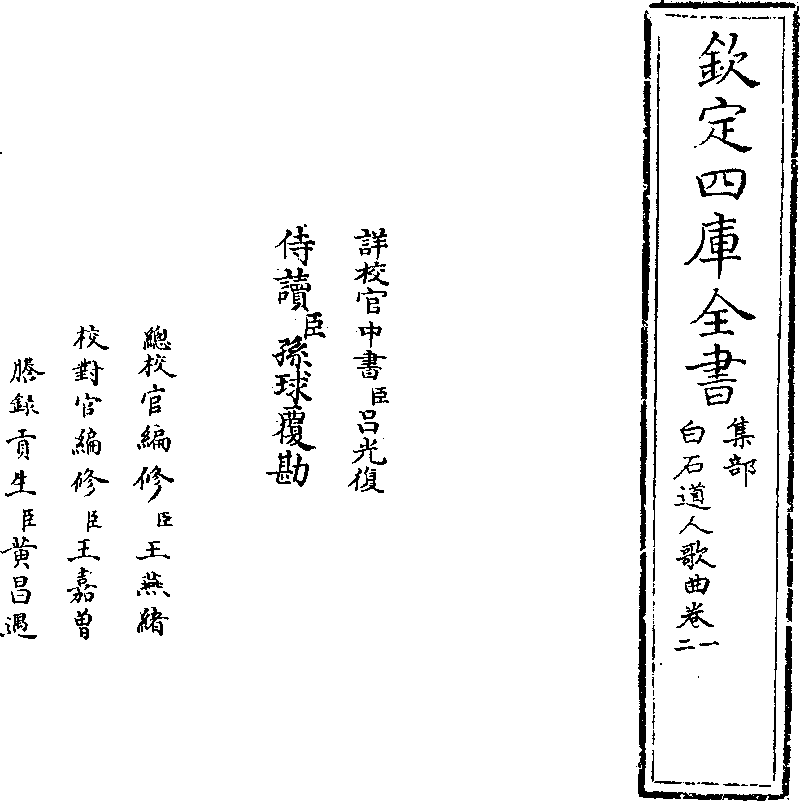 欽定四庫全書
集部
白石道人歌曲卷一二
詳校官中書臣呂光復
侍讀臣孫球覆勘
總校官編修臣王燕緒
校對官編修臣王嘉曾
謄錄貢生臣黃昌遇